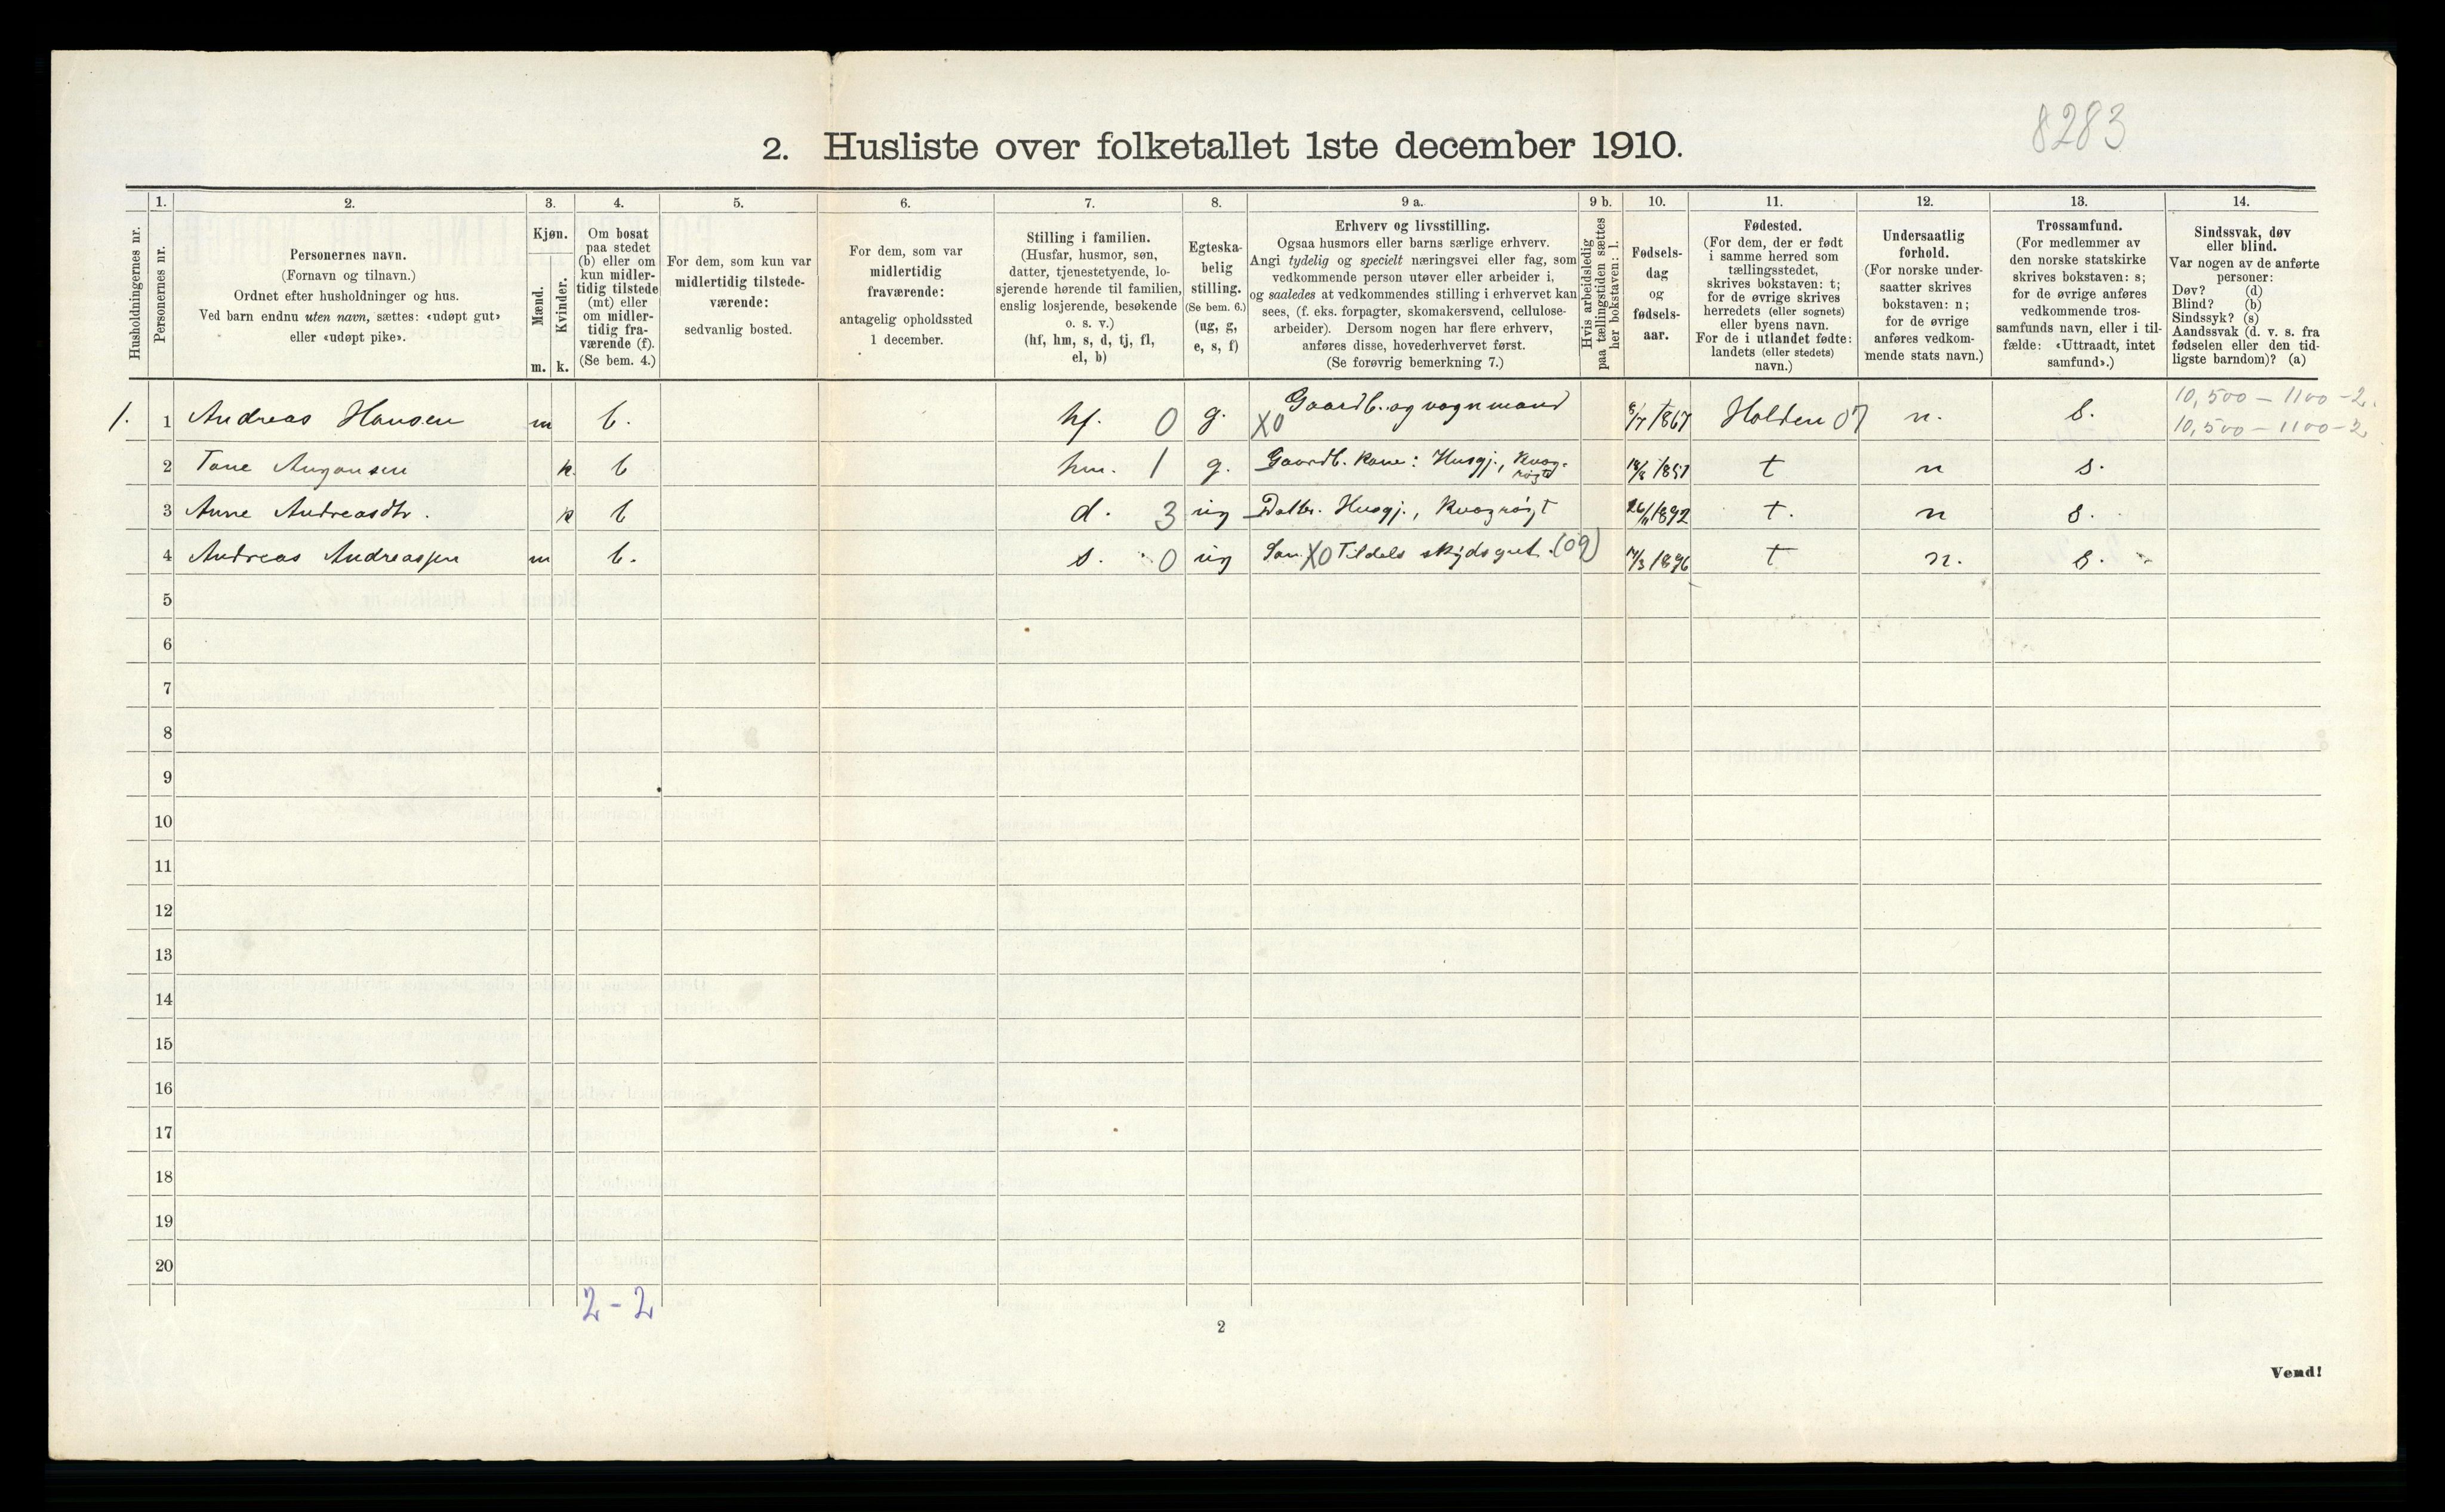 8283
2. Husliste over folketallet 1ste december 1910.
Husholdningernes nr.
1.
Personernes nr.
2.
Personernes navn.
(Fornavn og tilnavn.)
Ordnet efter husholdninger og hus.
Ved barn endnu uten navn, sættes: «udøpt gut»
eller «udøpt pike».
3.
Kjøn.
Mænd.
Kvinder.
m. k.
4.
Om bosat
paa stedet
(b) eller om
kun midler-
tidig tilstede
(mt) eller
om midler-
tidig fra-
værende (f).
(Se bem. 4.)
5.
For dem, som kun var
midlertidig tilstede-
værende:
sedvanlig bosted.
6.
For dem, som var
midlertidig
fraværende:
antagelig opholdssted
1 december.
7.
Stilling i familien.
(Husfar, husmor, søn,
datter, tjenestetyende, lo-
sjerende hørende til familien,
enslig losjerende, besøkende
o. s. v.)
(hf, hm, s, d, tj, fl,
el, b)
8.
Egteska-
belig
stilling.
(Se bem. 6.)
(ug, g,
e, s, f)
9 a.
Erhverv og livsstilling.
Ogsaa husmors eller barns særlige erhverv.
Angi tydelig og specielt næringsvei eller fag, som
vedkommende person utøver eller arbeider i,
og saaledes at vedkommendes stilling i erhvervet kan
sees, (f. eks. forpagter, skomakersvend, cellulose-
arbeider). Dersom nogen har flere erhverv,
anføres disse, hovederhvervet først.
(Se forøvrig bemerkning 7.)
9 b.
Hvis arbeidsledig
paa tællingstiden sættes
her bokstaven: l.
10.
Fødsels-
dag
og
fødsels-
aar.
11.
Fødested.
(For dem, der er født
i samme herred som
tællingsstedet,
skrives bokstaven: t;
for de øvrige skrives
herredets (eller sognets)
eller byens navn.
For de i utlandet fødte:
landets (eller stedets)
navn.)
12.
Undersaatlig
forhold.
(For norske under-
saatter skrives
bokstaven: n;
for de øvrige
anføres vedkom-
mende stats navn.)
13.
Trossamfund.
(For medlemmer av
den norske statskirke
skrives bokstaven: s;
for de øvrige anføres
vedkommende tros-
samfunds navn, eller i til-
fælde: «Uttraadt, intet
samfund».)
14.
Sindssvak, døv
eller blind.
Var nogen av de anførte
personer:
Døv? (d)
Blind? (b)
Sindssyk? (s)
Aandssvak (d. v. s. fra
fødselen eller den tid-
ligste barndom)? (a)
10,500 — 1100 - 2.
1. 1 Andreas Hansen m b. hf. 0 g. X0 Gaardb. og vognmand 8/7 1867 Holden 07 n. s. 10,500 — 1100 - 2
2 Tone k b hm. 1 g. Gaardb. kone: Husgj., Kvæg-
røgt t n s.
3 Anne Andreasdtr. k b d. 3 ug Datter. Husgj., Kvægrøgt 26/11 1892 t. n s.
4 Andreas Andreassen m b. s. 0 ug Søn X0 Tildels skydsgut. (09) 1896 t n. s.
5
6
7
8
9
10
11
12
13
14
15
16
17
18
19
20
2 - 2
2
Vend!